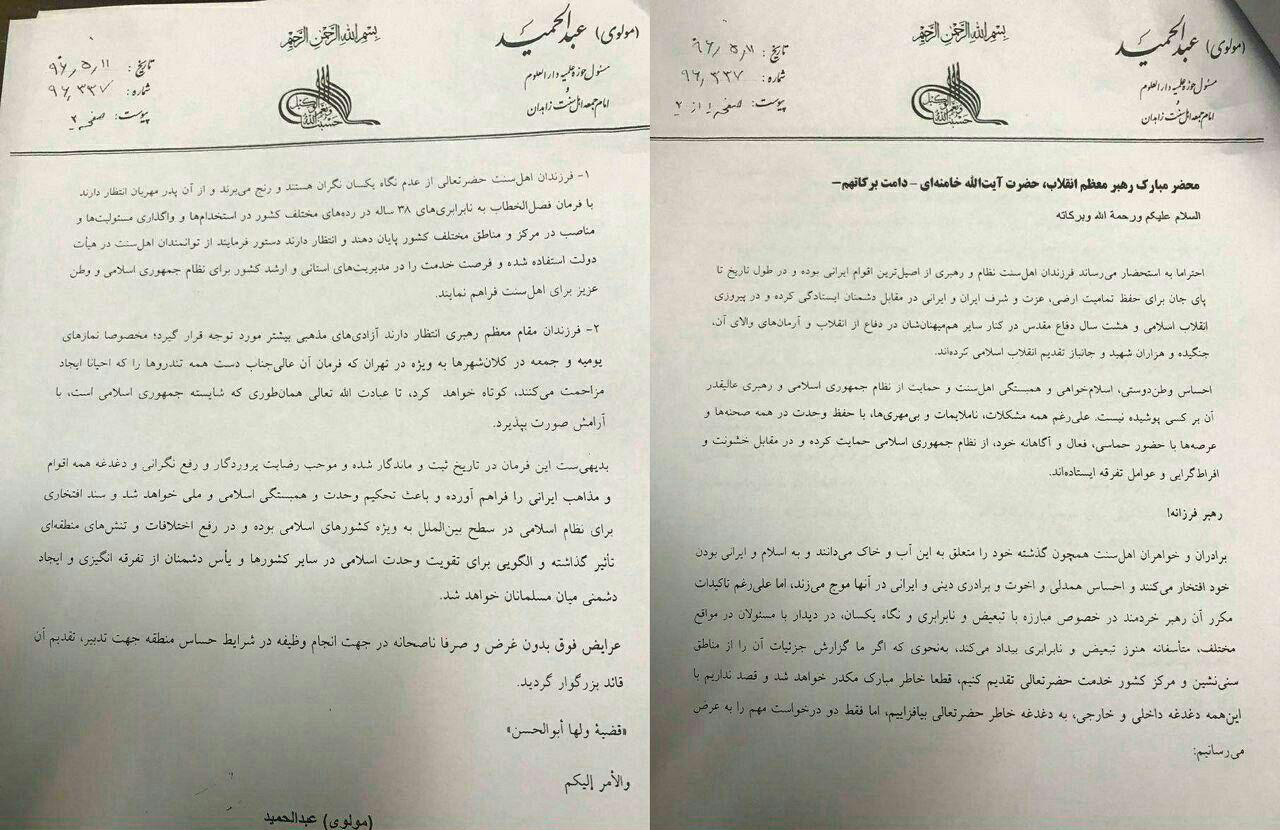 بسم الله الرحمن الرحیم
(مولوی) عبدالحمید
مسئول حوزه علمیه دارالعلوم
و
امام جمعه اهل سنت زاهدان
حسبنا الله و نعم الوکیل
تاریخ: ۹۶٫۵٫۱۱
شماره: ۹۶٫۳۳۷
پیوست: صفحه ۱ از ۲
محضر مبارک رهبر معظم انقلاب، حضرت آیت‌الله خامنه‌ای – دامت برکاتهم–
السلام علیکم ورحمة الله وبرکاته
احتراما به استحضار می‌رساند فرزندان اهل‌سنت نظام و رهبری از اصیل‌ترین اقوام ایرانی بوده و در طول تاریخ تا
پای جان برای حفظ تمامیت ارضی، عزت و شرف ایران و ایرانی در مقابل دشمنان ایستادگی کرده و در پیروزی
انقلاب اسلامی و هشت سال دفاع مقدس در کنار سایر هم‌میهنان‌شان در دفاع از انقلاب و آرمان‌های والای آن،
جنگیده و هزاران شهید و جانباز تقدیم انقلاب اسلامی کرده‌اند.
احساس وطن‌دوستی، اسلام‌خواهی و همبستگی اهل‌سنت و حمایت از نظام جمهوری اسلامی و رهبری عالیقدر
آن بر کسی پوشیده نیست. علی‌رغم همه مشکلات، ناملایمات و بی‌مهری‌ها، با حفظ وحدت در همه صحنه‌ها و
عرصه‌ها با حضور حماسی، فعال و آگاهانه خود، از نظام جمهوری اسلامی حمایت کرده و در مقابل خشونت و
افراط‌گرایی و عوامل تفرقه ایستاده‌اند.
رهبر فرزانه!
برادران و خواهران اهل‌سنت همچون گذشته خود را متعلق به این آب و خاک می‌دانند و به اسلام و ایرانی بودن
خود افتخار می‌کنند و احساس همدلی و اخوت و برادری دینی و ایرانی در آنها موج می‌زند، اما علی‌رغم تاکیدات
مکرر آن رهبر خردمند در خصوص مبارزه با تبعیض و نابرابری و نگاه یکسان، در دیدار با مسئولان در مواقع
مختلف، متأسفانه هنوز تبعیض و نابرابری بیداد می‌کند، به‌نحوی که اگر ما گزارش جزئیات آن را از مناطق
سنی‌نشین و مرکز کشور خدمت حضرتعالی تقدیم کنیم، قطعا خاطر مبارک مکدر خواهد شد و قصد نداریم با
این‌همه دغدغه داخلی و خارجی، به دغدغه خاطر حضرتعالی بیافزاییم، اما فقط دو درخواست مهم را به عرض
می‌رسانیم:
بسم الله الرحمن الرحیم
(مولوی) عبدالحمید
مسئول حوزه علمیه دارالعلوم
و
امام جمعه اهل سنت زاهدان
حسبنا الله و نعم الوکیل
تاریخ: ۹۶٫۵٫۱۱
شماره: ۹۶٫۳۳۷
پیوست: صفحه ۲
۱- فرزندان اهل‌سنت حضرتعالی از عدم نگاه یکسان نگران هستند و رنج می‌برند و از آن پدر مهربان انتظار دارند
با فرمان فصل‌الخطاب به نابرابری‌های ۳۸ ساله در رده‌های مختلف کشور در استخدام‌ها و واگذاری مسئولیت‌ها و
مناصب در مرکز و مناطق مختلف کشور پایان دهند و انتظار دارند دستور فرمایند از توانمندان اهل‌سنت در هیأت
دولت استفاده شده و فرصت خدمت را در مدیریت‌های استانی و ارشد کشور برای نظام جمهوری اسلامی و وطن
عزیز برای اهل‌سنت فراهم نمایند.
۲- فرزندان مقام معظم رهبری انتظار دارند آزادی‌های مذهبی بیشتر مورد توجه قرار گیرد؛ مخصوصا نمازهای
یومیه و جمعه در کلان‌شهرها به ویژه در تهران که فرمان آن عالی‌جناب دست همه تندروها را که احیانا ایجاد
مزاحمت می‌کنند، کوتاه خواهد کرد، تا عبادت الله تعالی همان‌طوری که شایسته جمهوری اسلامی است، با
آرامش صورت بپذیرد.
بدیهی‌ست این فرمان در تاریخ ثبت و ماندگار شده و موجب رضایت پروردگار و رفع نگرانی و دغدغه همه اقوام
و مذاهب ایرانی را فراهم آورده و باعث تحکیم وحدت و همبستگی اسلامی و ملی خواهد شد و سند افتخاری
برای نظام اسلامی در سطح بین‌الملل به ویژه کشورهای اسلامی بوده و در رفع اختلافات و تنش‌های منطقه‌ای
تأثیر گذاشته و الگویی برای تقویت وحدت اسلامی در سایر کشورها و یأس دشمنان از تفرقه انگیزی و ایجاد
دشمنی میان مسلمانان خواهد شد.
عرایض فوق بدون غرض و صرفا ناصحانه در جهت انجام وظیفه در شرایط حساس منطقه جهت تدبیر، تقدیم آن
قائد بزرگوار گردید.
«قضیة ولها أبوالحسن»
والأمر إلیکم
(مولوی) عبدالحمید